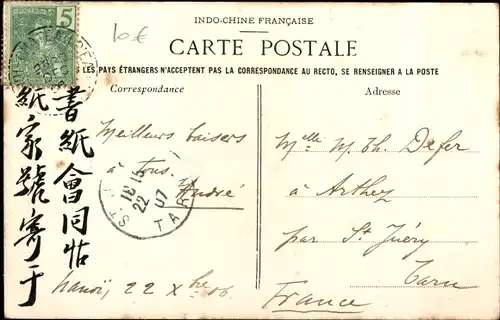 INDO-CHINE FRANÇAISE
10€
5
CARTE POSTALE
LES PAYS ÉTRANGERS N'ACCEPTENT PAS LA CORRESPONDANCE AU RECTO, SE RENSEIGNER A LA POSTE
Correspondance
Adresse
書紙會同帖
紙家號寄于
Meilleurs baisers
à tous.
André
Hanoï, 22 Xbre 06.
22
07
TARN
Melle M. Th. Defer
à Arthez
par St Juéry
Tarn
France